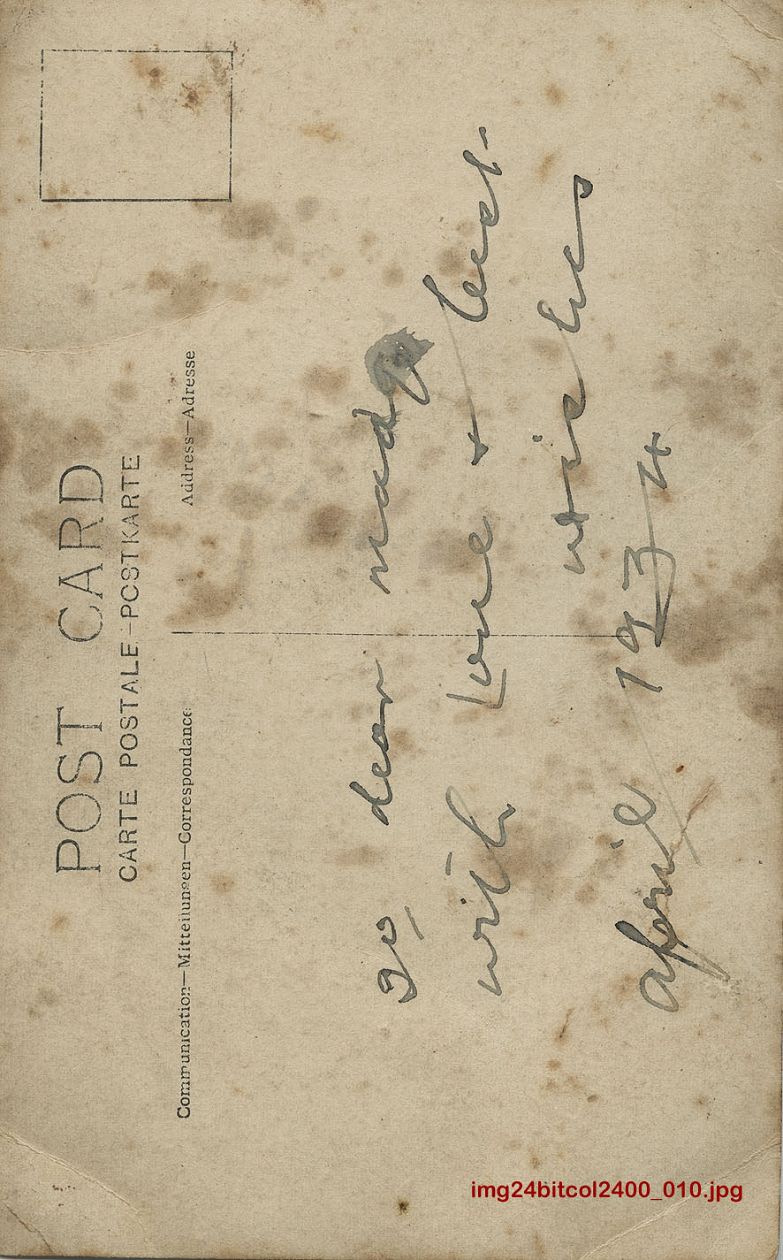 POST CARD
CARTE POSTALE—POSTKARTE
Communication—Mitteilungen—Correspondance
Address—Adresse
To dear madge
with Love + best
wishes
April 1934
img24bitcol2400_010.jpg